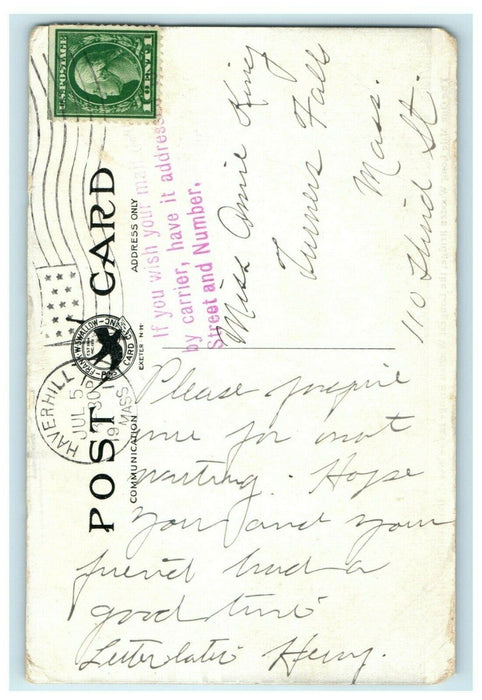 U.S. POSTAGE
1 CENT 1
POST CARD
ADDRESS ONLY
COMMUNICATION
FRANK W. SWALLOW
POST CARD CO. INC.
EXETER N.H.
HAVERHILL
JUL 5
30P
19
MASS.
If you wish your mail
by carrier, have it address
Street and Number,
Miss Annie King
Turners Falls
Mass.
110 Third St.
Please forgive
me for not
writing. Hope
you and your
friend had a
good time
Letter later Henry.